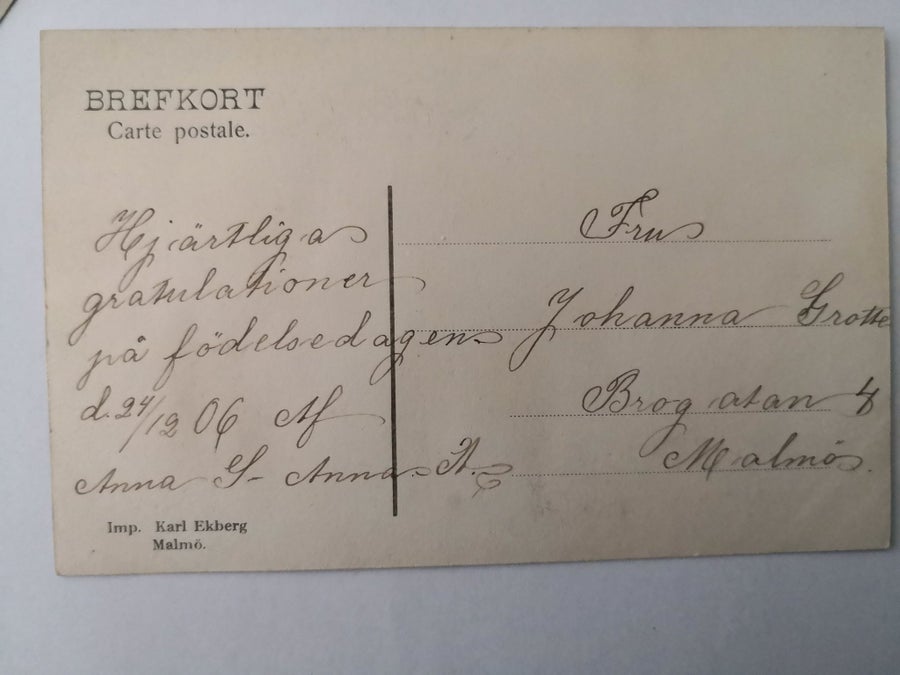 BREFKORT
Carte postale.
Hjärtliga
gratulationer
på födelsedagen
d. 24/12 06 Af
Anna S- Anna. A.
Imp. Karl Ekberg
Malmö.
Fru
Johanna Grotte
Brogatan 8
Malmö.